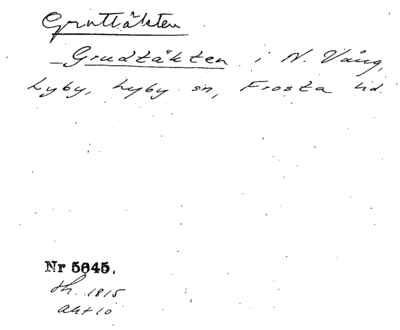 Gruttäkten
– Grudtäkten i N. Vång,
Lyby, Lyby sn, Frosta hd.
Nr 5645.
Sk. 1815
akt 10